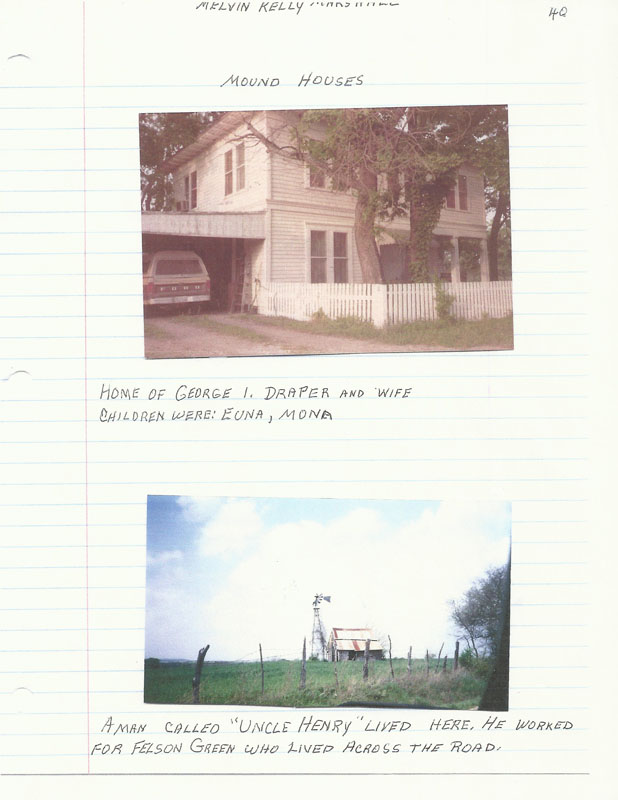 MELVIN KELLY MARSHALL
40
MOUND HOUSES
HOME OF GEORGE I. DRAPER AND WIFE
CHILDREN WERE: EUNA, MONA
A MAN CALLED "UNCLE HENRY" LIVED HERE. HE WORKED
FOR FELSON GREEN WHO LIVED ACROSS THE ROAD.